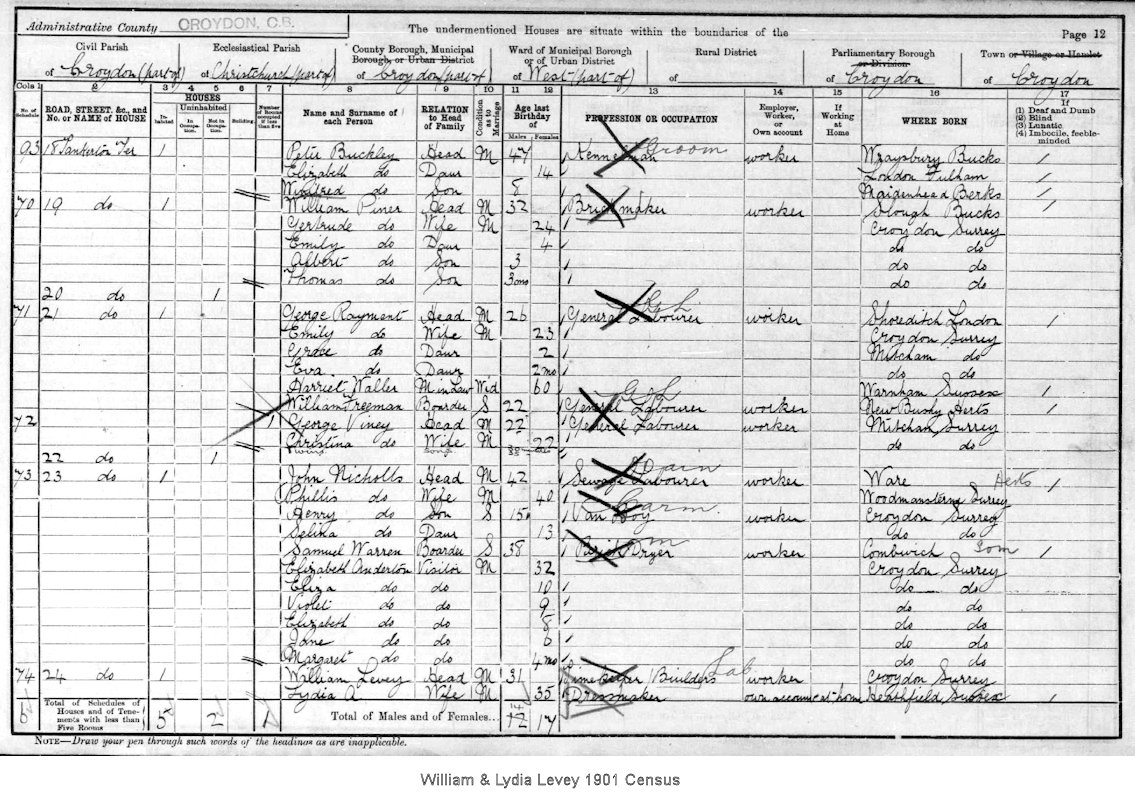 Administrative County CROYDON, C.B. The undermentioned Houses are situate within the boundaries of the Page 12
Civil Parish Ecclesiastical Parish County Borough, Municipal Borough, or Urban District Ward of Municipal Borough or of Urban District Rural District Parliamentary Borough or Division Town or Village or Hamlet
of Croydon (part of) of Christchurch (part of) of Croydon (part of of West (part of) of of Croydon of Croydon
Cols 1 2 3 4 5 6 7 8 9 10 11 12 13 14 15 16 17
No. of Schedule ROAD, STREET, &c., and No. or NAME of HOUSE HOUSES Inhabited Uninhabited In Occupation. Not in Occupation. Building Number of Rooms occupied if less than five Name and Surname of each Person RELATION to Head of Family Condition as to Marriage Age last Birthday of Males Females PROFESSION OR OCCUPATION Employer, Worker, or Own account If Working at Home WHERE BORN If (1) Deaf and Dumb (2) Blind (3) Lunatic (4) Imbecile, feeble-minded
93 18 Tankerton Ter 1 Peter Buckley Head M 47 Kennelman Groom worker Wraysbury Bucks
Elizabeth do Daur 14 London Fulham
do Son 8 Maidenhead Berks
70 19 do 1 William Piner Head M 32 Brickmaker worker Slough Bucks
Gertrude do Wife M 24 Croydon Surrey
Emily do Daur 4 do do
Albert do Son 3 do do
Thomas do Son 3mo do do
20 do 1
71 21 do 1 George Rayment Head M 26 General Labourer G L worker Shoreditch London
Emily do Wife M 23 Croydon Surrey
Grace do Daur 2 Mitcham do
Eva do Daur 2mo do do
Harriet Waller M in Law Wid 60 Warnham Sussex
William Freeman Boarder S 22 General Labourer G L worker New Bushy Herts
72 1 George Viney Head M 22 General Labourer worker Mitcham Surrey
Christina do Wife M 22 do do
22 do 1
73 23 do 1 John Nicholls Head M 42 Sewage Labourer worker Ware Herts
Phillis do Wife M 40 Woodmansterne Surrey
Henry do Son S 15 Van Boy Carm worker Croydon Surrey
Selina do Daur 13 do do
Samuel Warren Boarder S 38 Dryer worker Combwich Som
Elizabeth Anderton Visitor M 32 Croydon Surrey
Eliza do do 10 do do
Violet do do 9 do do
Elizabeth do do 8 do do
Jane do do 6 do do
Margaret do do 4mo do do
74 24 do 1 William Levey Head M 31 Timekeeper Builders Lab worker Croydon Surrey
Lydia A Wife M 35 Dressmaker own account at home Heathfield Sussex
6 Total of Schedules of Houses and of Tenements with less than Five Rooms 5 2 1 Total of Males and of Females... 12 17
NOTE—Draw your pen through such words of the headings as are inapplicable.
William & Lydia Levey 1901 Census